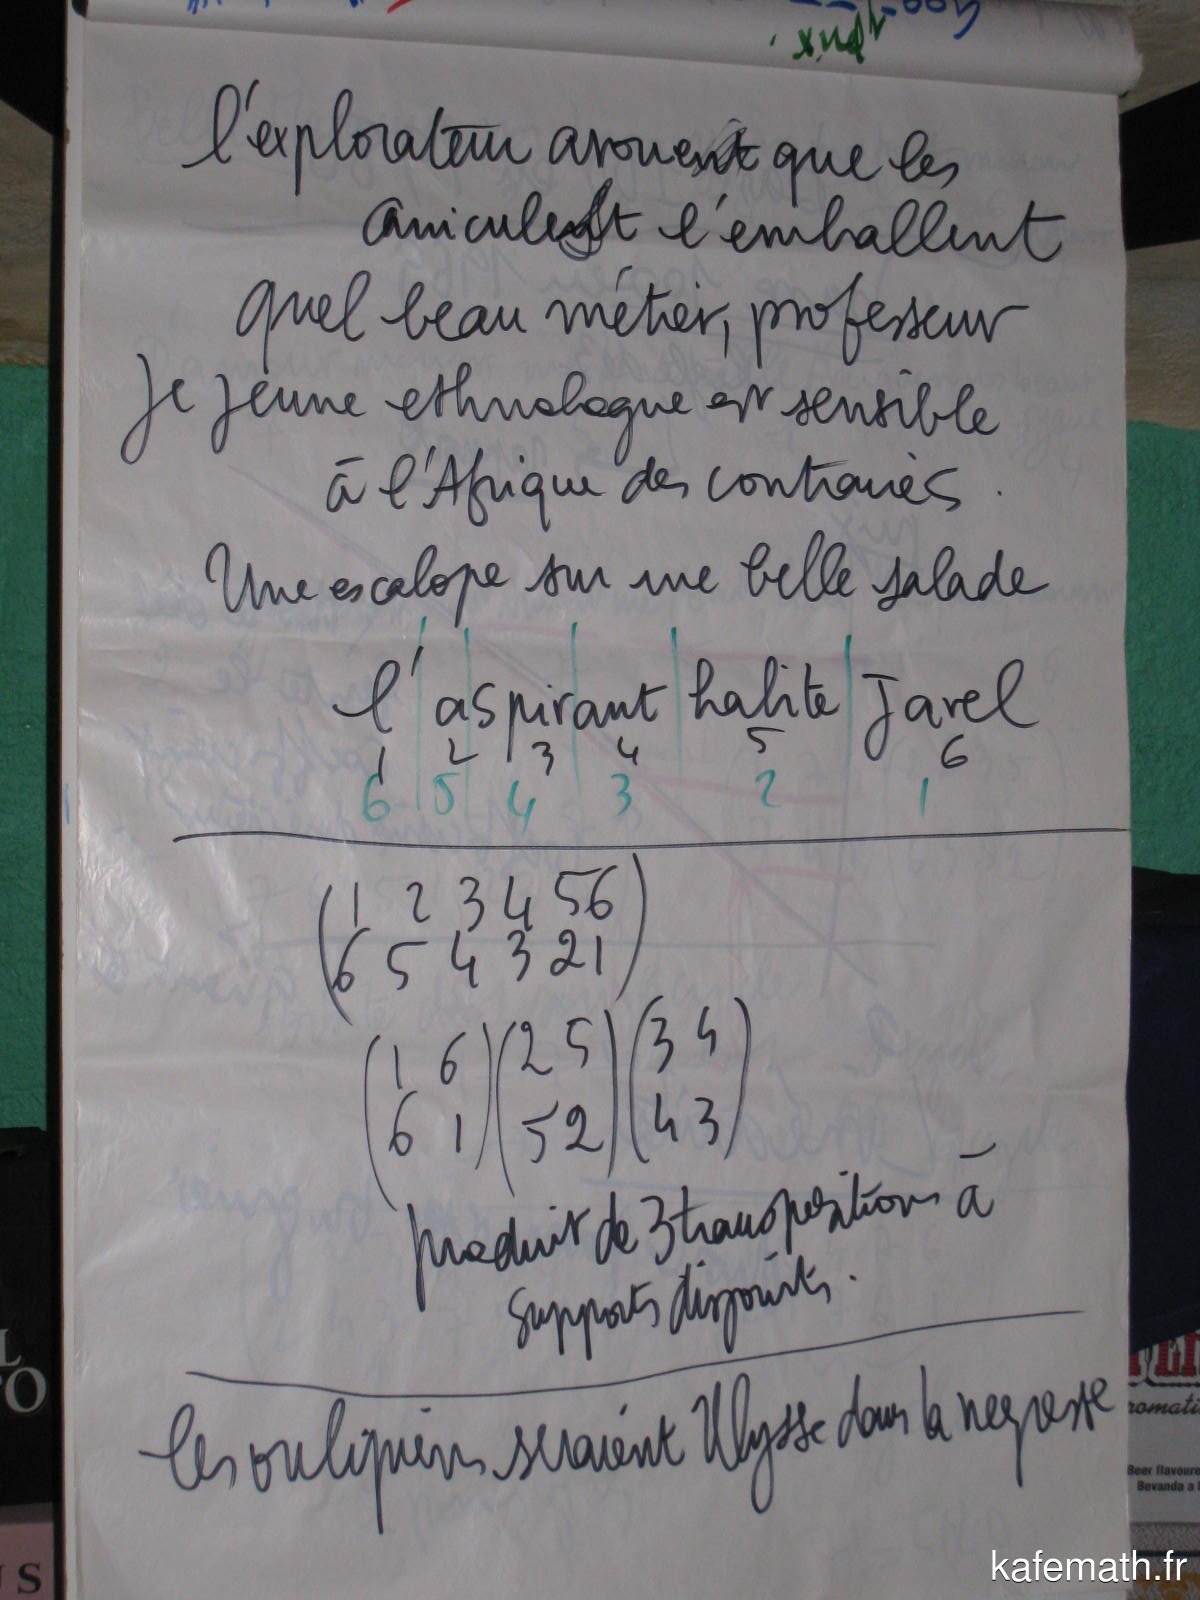 1pux.
l'explorateur avouent que les
canicules l'emballent
quel beau métier, professeur
Je jeune ethnologue est sensible
à l'Afrique des contraires.
Une escalope sur une belle salade
l' aspirant habite Javel
1 2 3 4 5 6
6 5 4 3 2 1
(1 2 3 4 5 6)
(6 5 4 3 2 1)
(1 6) (2 5) (3 4)
(6 1) (5 2) (4 3)
produit de 3 transpositions à
supports disjoints.
les oulipiens seraient Ulysse dans la negresse
Beer flavoure
Bevanda a
kafemath.fr